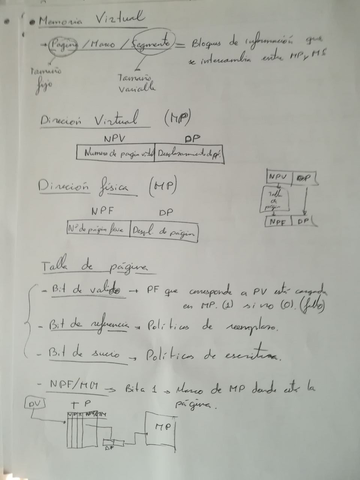 • Memoria Virtual
→ Página / Marco / Segmento = Bloques de información que
se intercambia entre MP y MS
Tamaño
fijo
Tamaño
variable
Direcion Virtual (MP)
NPV DP
Numero de página Desplazamiento
Direcion física (MP)
NPF DP
Nº de página física Despl de página
NPV DP
Tabla
de
página
NPF DP
Talla de página
- Bit de valido → PF que corresponde a PV está cargada
en MP. (1) si no (0). (fallo)
- Bit de referencia → Politicas de reemplazo.
- Bit de sucio → Politicas de escritura.
- NPF/MM → Bit a 1 → Marco de MP donde está la
página.
DV
T P
DP
MP